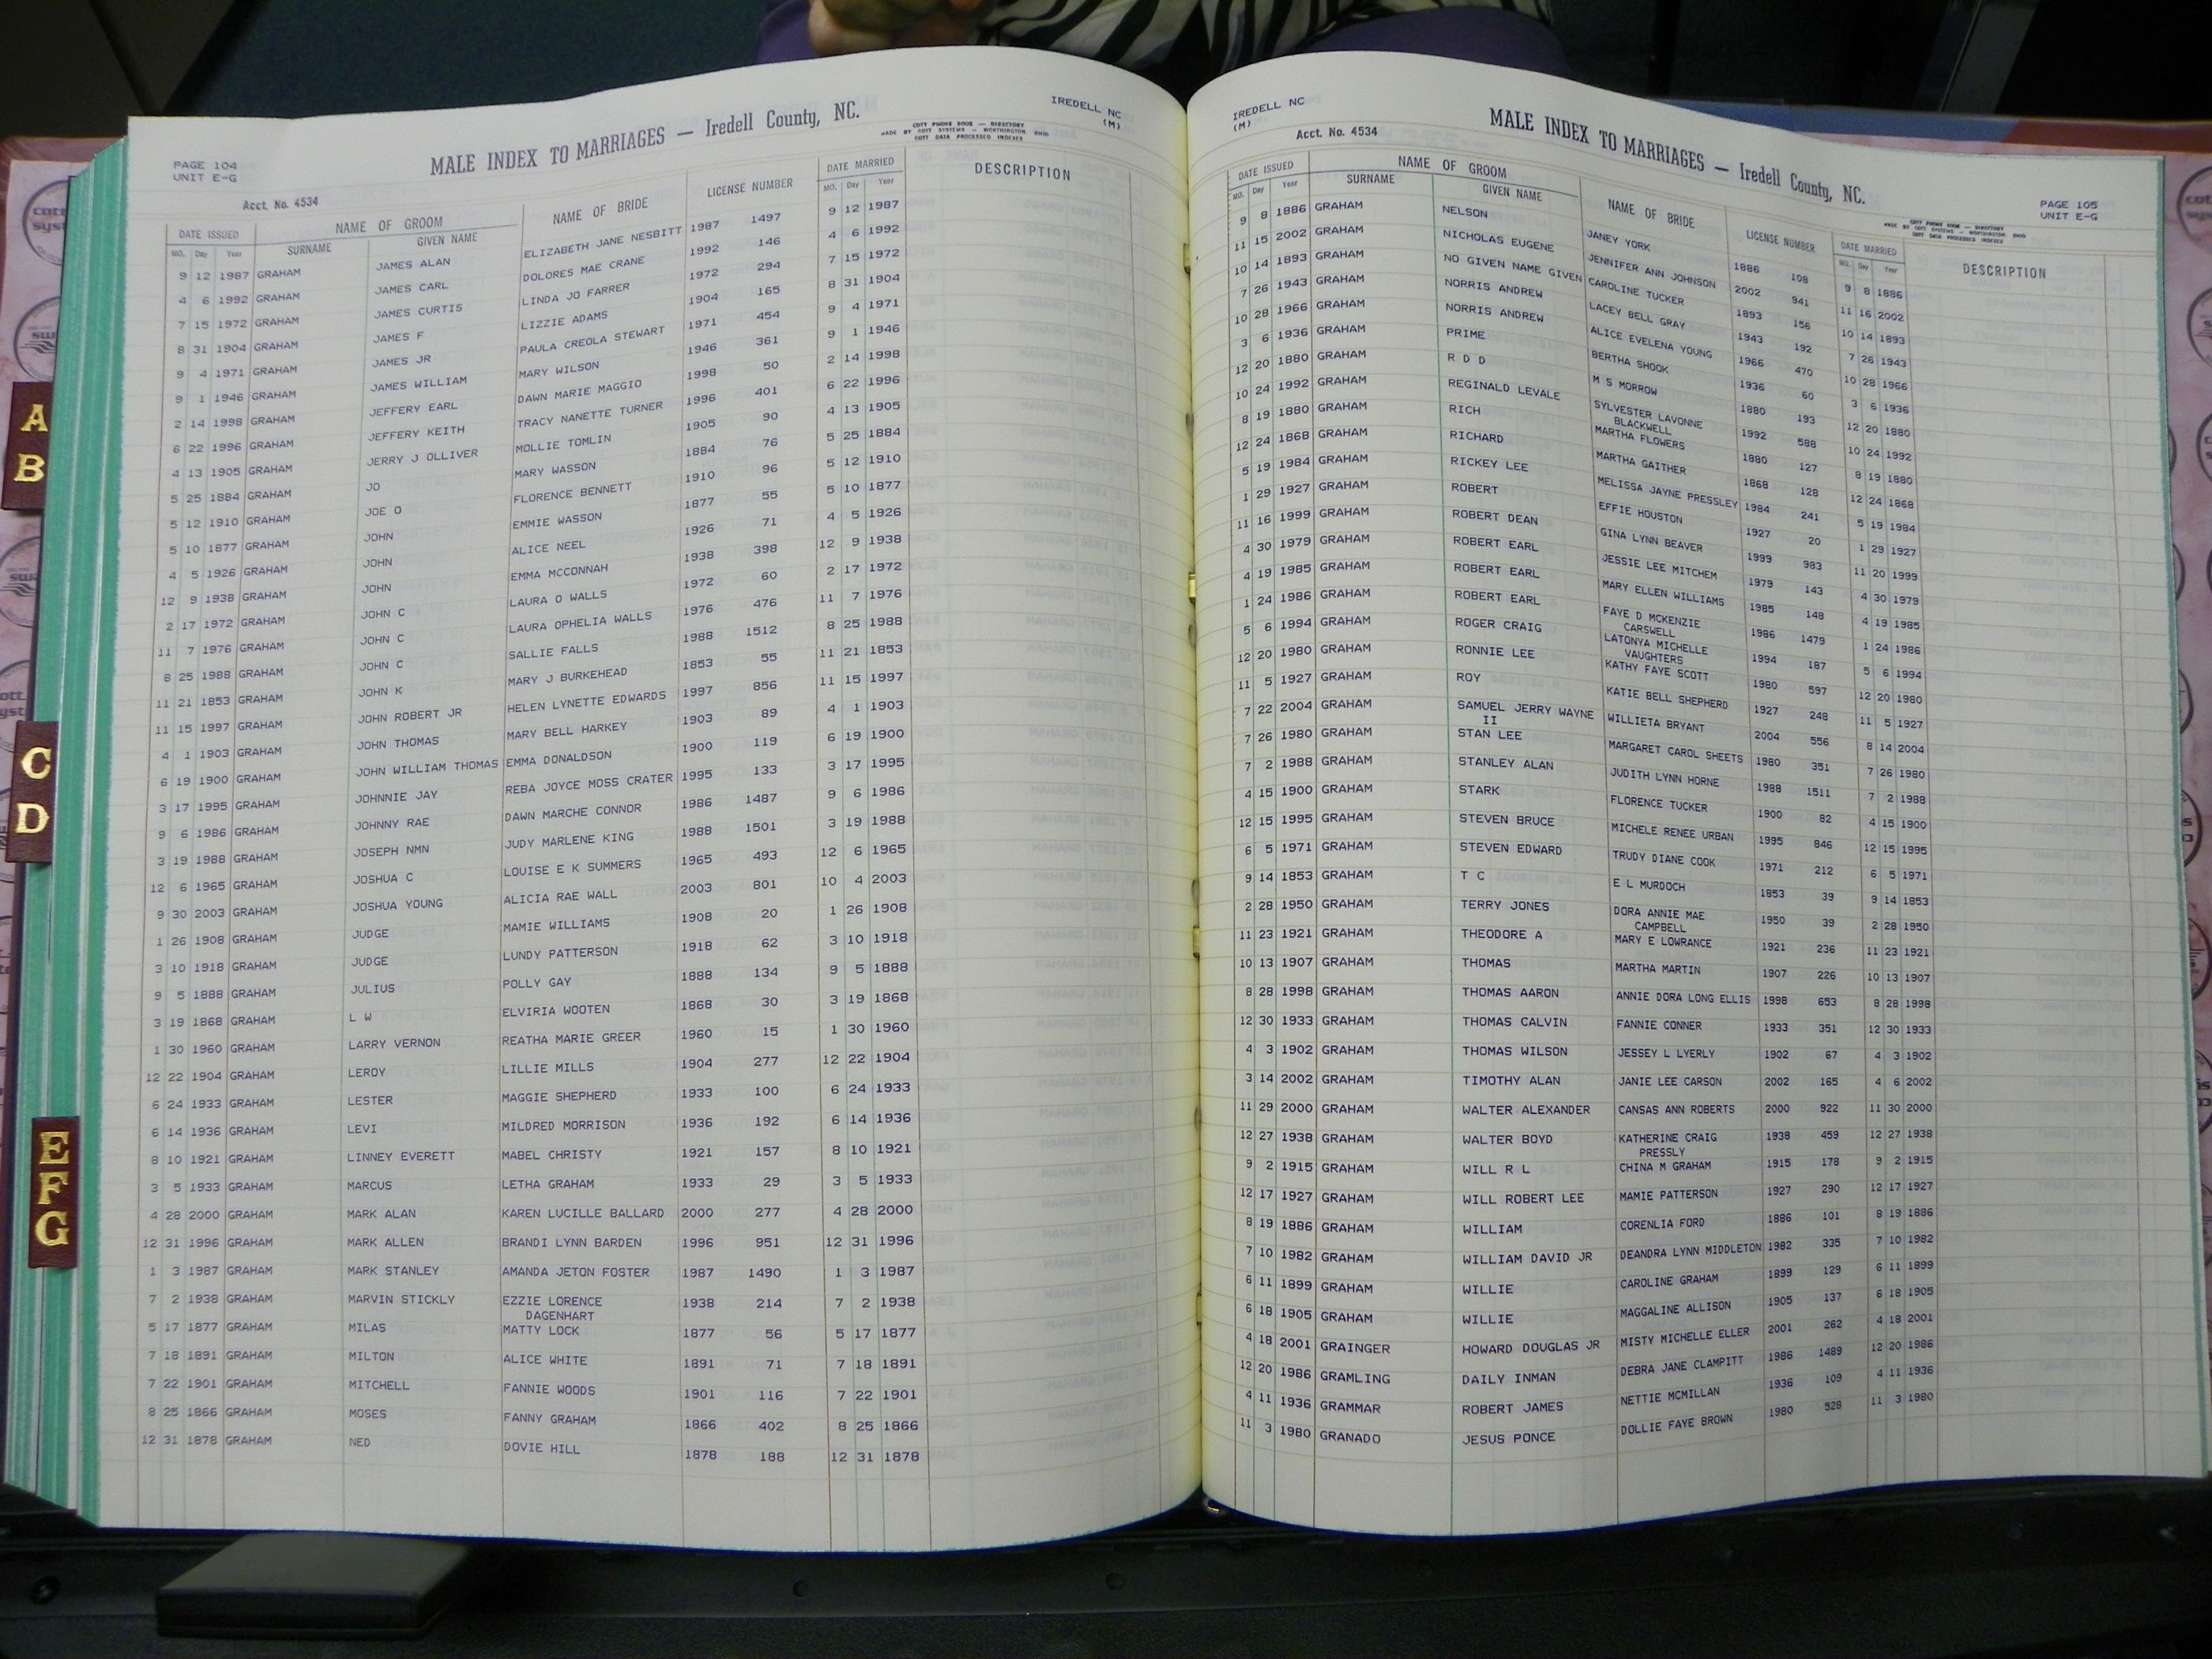 PAGE 104
UNIT E-G
MALE INDEX TO MARRIAGES — Iredell County, NC.
IREDELL NC
(M)
COTT PHONE BOOK — DIRECTORY
MADE BY COTT SYSTEMS — WORTHINGTON, OHIO
COTT DATA PROCESSED INDEXES
Acct. No. 4534
DATE ISSUED NAME OF GROOM NAME OF BRIDE LICENSE NUMBER DATE MARRIED DESCRIPTION
MO. Day Year SURNAME GIVEN NAME MO. Day Year
9 12 1987 GRAHAM JAMES ALAN ELIZABETH JANE NESBITT 1987 1497 9 12 1987
4 6 1992 GRAHAM JAMES CARL DOLORES MAE CRANE 1992 146 4 6 1992
7 15 1972 GRAHAM JAMES CURTIS LINDA JO FARRER 1972 294 7 15 1972
8 31 1904 GRAHAM JAMES F LIZZIE ADAMS 1904 165 8 31 1904
9 4 1971 GRAHAM JAMES JR PAULA CREOLA STEWART 1971 454 9 4 1971
9 1 1946 GRAHAM JAMES WILLIAM MARY WILSON 1946 361 9 1 1946
2 14 1998 GRAHAM JEFFERY EARL DAWN MARIE MAGGIO 1998 50 2 14 1998
6 22 1996 GRAHAM JEFFERY KEITH TRACY NANETTE TURNER 1996 401 6 22 1996
4 13 1905 GRAHAM JERRY J OLLIVER MOLLIE TOMLIN 1905 90 4 13 1905
5 25 1884 GRAHAM JO MARY WASSON 1884 76 5 25 1884
5 12 1910 GRAHAM JOE O FLORENCE BENNETT 1910 96 5 12 1910
5 10 1877 GRAHAM JOHN EMMIE WASSON 1877 55 5 10 1877
4 5 1926 GRAHAM JOHN ALICE NEEL 1926 71 4 5 1926
12 9 1938 GRAHAM JOHN EMMA MCCONNAH 1938 398 12 9 1938
2 17 1972 GRAHAM JOHN C LAURA O WALLS 1972 60 2 17 1972
11 7 1976 GRAHAM JOHN C LAURA OPHELIA WALLS 1976 476 11 7 1976
8 25 1988 GRAHAM JOHN C SALLIE FALLS 1988 1512 8 25 1988
11 21 1853 GRAHAM JOHN K MARY J BURKEHEAD 1853 55 11 21 1853
11 15 1997 GRAHAM JOHN ROBERT JR HELEN LYNETTE EDWARDS 1997 856 11 15 1997
4 1 1903 GRAHAM JOHN THOMAS MARY BELL HARKEY 1903 89 4 1 1903
6 19 1900 GRAHAM JOHN WILLIAM THOMAS EMMA DONALDSON 1900 119 6 19 1900
3 17 1995 GRAHAM JOHNNIE JAY REBA JOYCE MOSS CRATER 1995 133 3 17 1995
9 6 1986 GRAHAM JOHNNY RAE DAWN MARCHE CONNOR 1986 1487 9 6 1986
3 19 1988 GRAHAM JOSEPH NMN JUDY MARLENE KING 1988 1501 3 19 1988
12 6 1965 GRAHAM JOSHUA C LOUISE E K SUMMERS 1965 493 12 6 1965
9 30 2003 GRAHAM JOSHUA YOUNG ALICIA RAE WALL 2003 801 10 4 2003
1 26 1908 GRAHAM JUDGE MAMIE WILLIAMS 1908 20 1 26 1908
3 10 1918 GRAHAM JUDGE LUNDY PATTERSON 1918 62 3 10 1918
9 5 1888 GRAHAM JULIUS POLLY GAY 1888 134 9 5 1888
3 19 1868 GRAHAM L W ELVIRIA WOOTEN 1868 30 3 19 1868
1 30 1960 GRAHAM LARRY VERNON REATHA MARIE GREER 1960 15 1 30 1960
12 22 1904 GRAHAM LEROY LILLIE MILLS 1904 277 12 22 1904
6 24 1933 GRAHAM LESTER MAGGIE SHEPHERD 1933 100 6 24 1933
6 14 1936 GRAHAM LEVI MILDRED MORRISON 1936 192 6 14 1936
8 10 1921 GRAHAM LINNEY EVERETT MABEL CHRISTY 1921 157 8 10 1921
3 5 1933 GRAHAM MARCUS LETHA GRAHAM 1933 29 3 5 1933
4 28 2000 GRAHAM MARK ALAN KAREN LUCILLE BALLARD 2000 277 4 28 2000
12 31 1996 GRAHAM MARK ALLEN BRANDI LYNN BARDEN 1996 951 12 31 1996
1 3 1987 GRAHAM MARK STANLEY AMANDA JETON FOSTER 1987 1490 1 3 1987
7 2 1938 GRAHAM MARVIN STICKLY EZZIE LORENCE 1938 214 7 2 1938
DAGENHART
5 17 1877 GRAHAM MILAS MATTY LOCK 1877 56 5 17 1877
7 18 1891 GRAHAM MILTON ALICE WHITE 1891 71 7 18 1891
7 22 1901 GRAHAM MITCHELL FANNIE WOODS 1901 116 7 22 1901
8 25 1866 GRAHAM MOSES FANNY GRAHAM 1866 402 8 25 1866
12 31 1878 GRAHAM NED DOVIE HILL 1878 188 12 31 1878
A
B
C
D
E
F
G
IREDELL NC
(M)
Acct. No. 4534
MALE INDEX TO MARRIAGES — Iredell County, NC.
PAGE 105
UNIT E-G
COTT PHONE BOOK — DIRECTORY
MADE BY COTT SYSTEMS — WORTHINGTON, OHIO
COTT DATA PROCESSED INDEXES
DATE ISSUED NAME OF GROOM NAME OF BRIDE LICENSE NUMBER DATE MARRIED DESCRIPTION
MO. Day Year SURNAME GIVEN NAME MO. Day Year
9 8 1886 GRAHAM NELSON JANEY YORK 1886 108 9 8 1886
11 15 2002 GRAHAM NICHOLAS EUGENE JENNIFER ANN JOHNSON 2002 941 11 16 2002
10 14 1893 GRAHAM NO GIVEN NAME GIVEN CAROLINE TUCKER 1893 156 10 14 1893
7 26 1943 GRAHAM NORRIS ANDREW LACEY BELL GRAY 1943 192 7 26 1943
10 28 1966 GRAHAM NORRIS ANDREW ALICE EVELENA YOUNG 1966 470 10 28 1966
3 6 1936 GRAHAM PRIME BERTHA SHOOK 1936 60 3 6 1936
12 20 1880 GRAHAM R D D M S MORROW 1880 193 12 20 1880
10 24 1992 GRAHAM REGINALD LEVALE SYLVESTER LAVONNE 1992 588 10 24 1992
BLACKWELL
8 19 1880 GRAHAM RICH MARTHA FLOWERS 1880 127 8 19 1880
12 24 1868 GRAHAM RICHARD MARTHA GAITHER 1868 128 12 24 1868
5 19 1984 GRAHAM RICKEY LEE MELISSA JAYNE PRESSLEY 1984 241 5 19 1984
1 29 1927 GRAHAM ROBERT EFFIE HOUSTON 1927 20 1 29 1927
11 16 1999 GRAHAM ROBERT DEAN GINA LYNN BEAVER 1999 983 11 20 1999
4 30 1979 GRAHAM ROBERT EARL JESSIE LEE MITCHEM 1979 143 4 30 1979
4 19 1985 GRAHAM ROBERT EARL MARY ELLEN WILLIAMS 1985 148 4 19 1985
1 24 1986 GRAHAM ROBERT EARL FAYE D MCKENZIE 1986 1479 1 24 1986
CARSWELL
5 6 1994 GRAHAM ROGER CRAIG LATONYA MICHELLE 1994 187 5 6 1994
VAUGHTERS
12 20 1980 GRAHAM RONNIE LEE KATHY FAYE SCOTT 1980 597 12 20 1980
11 5 1927 GRAHAM ROY KATIE BELL SHEPHERD 1927 248 11 5 1927
7 22 2004 GRAHAM SAMUEL JERRY WAYNE WILLIETA BRYANT 2004 556 8 14 2004
II
7 26 1980 GRAHAM STAN LEE MARGARET CAROL SHEETS 1980 351 7 26 1980
7 2 1988 GRAHAM STANLEY ALAN JUDITH LYNN HORNE 1988 1511 7 2 1988
4 15 1900 GRAHAM STARK FLORENCE TUCKER 1900 82 4 15 1900
12 15 1995 GRAHAM STEVEN BRUCE MICHELE RENEE URBAN 1995 846 12 15 1995
6 5 1971 GRAHAM STEVEN EDWARD TRUDY DIANE COOK 1971 212 6 5 1971
9 14 1853 GRAHAM T C E L MURDOCH 1853 39 9 14 1853
2 28 1950 GRAHAM TERRY JONES DORA ANNIE MAE 1950 39 2 28 1950
CAMPBELL
11 23 1921 GRAHAM THEODORE A MARY E LOWRANCE 1921 236 11 23 1921
10 13 1907 GRAHAM THOMAS MARTHA MARTIN 1907 226 10 13 1907
8 28 1998 GRAHAM THOMAS AARON ANNIE DORA LONG ELLIS 1998 653 8 28 1998
12 30 1933 GRAHAM THOMAS CALVIN FANNIE CONNER 1933 351 12 30 1933
4 3 1902 GRAHAM THOMAS WILSON JESSEY L LYERLY 1902 67 4 3 1902
3 14 2002 GRAHAM TIMOTHY ALAN JANIE LEE CARSON 2002 165 4 6 2002
11 29 2000 GRAHAM WALTER ALEXANDER CANSAS ANN ROBERTS 2000 922 11 30 2000
12 27 1938 GRAHAM WALTER BOYD KATHERINE CRAIG 1938 459 12 27 1938
PRESSLY
9 2 1915 GRAHAM WILL R L CHINA M GRAHAM 1915 178 9 2 1915
12 17 1927 GRAHAM WILL ROBERT LEE MAMIE PATTERSON 1927 290 12 17 1927
8 19 1886 GRAHAM WILLIAM CORENLIA FORD 1886 101 8 19 1886
7 10 1982 GRAHAM WILLIAM DAVID JR DEANDRA LYNN MIDDLETON 1982 335 7 10 1982
6 11 1899 GRAHAM WILLIE CAROLINE GRAHAM 1899 129 6 11 1899
6 18 1905 GRAHAM WILLIE MAGGALINE ALLISON 1905 137 6 18 1905
4 18 2001 GRAINGER HOWARD DOUGLAS JR MISTY MICHELLE ELLER 2001 262 4 18 2001
12 20 1986 GRAMLING DAILY INMAN DEBRA JANE CLAMPITT 1986 1489 12 20 1986
4 11 1936 GRAMMAR ROBERT JAMES NETTIE MCMILLAN 1936 109 4 11 1936
11 3 1980 GRANADO JESUS PONCE DOLLIE FAYE BROWN 1980 528 11 3 1980